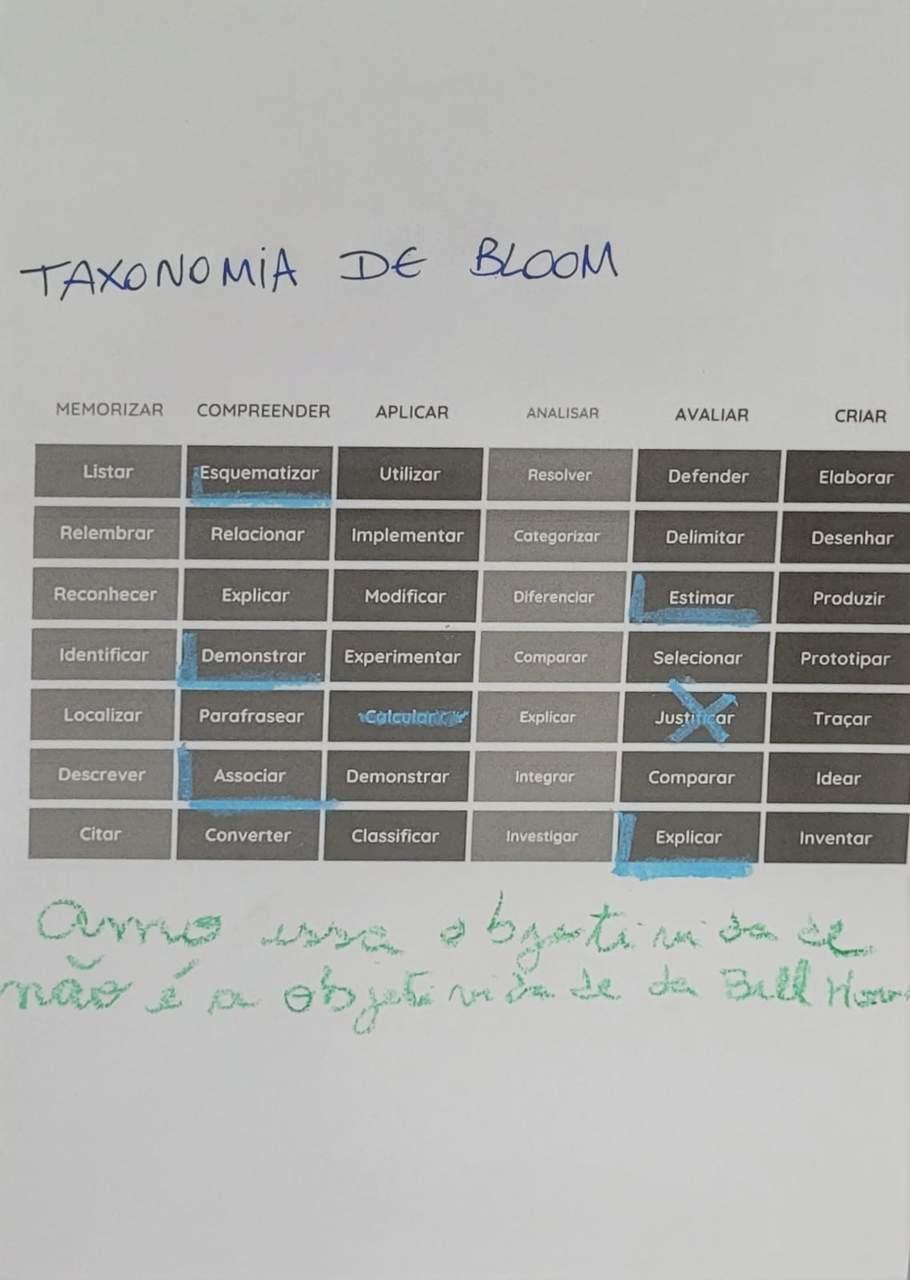 TAXONOMIA DE BLOOM
MEMORIZAR COMPREENDER APLICAR ANALISAR AVALIAR CRIAR
Listar Esquematizar Utilizar Resolver Defender Elaborar
Relembrar Relacionar Implementar Categorizar Delimitar Desenhar
Reconhecer Explicar Modificar Diferenciar Estimar Produzir
Identificar Demonstrar Experimentar Comparar Selecionar Prototipar
Localizar Parafrasear Calcular Explicar Justificar Traçar
Descrever Associar Demonstrar Integrar Comparar Idear
Citar Converter Classificar Investigar Explicar Inventar
Amo essa objetividade
não é a objetividade da Bell